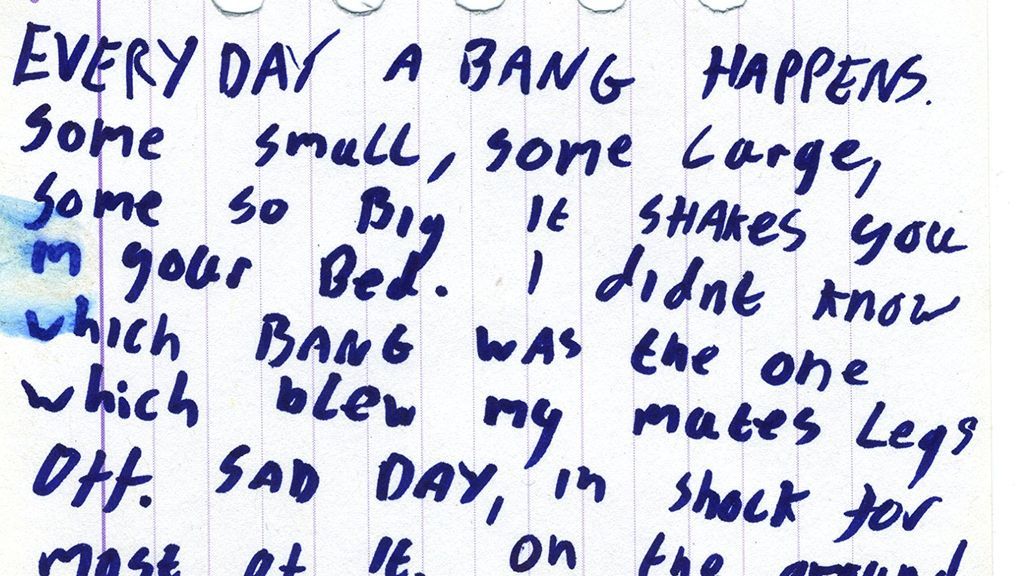 EVERY DAY A BANG HAPPENS.
Some small, some large,
Some so Big It SHAKES you
in your Bed. I didnt know
which BANG WAS the one
which blew my mates Legs
Off. SAD DAY, in shock for
most of It. On the ground